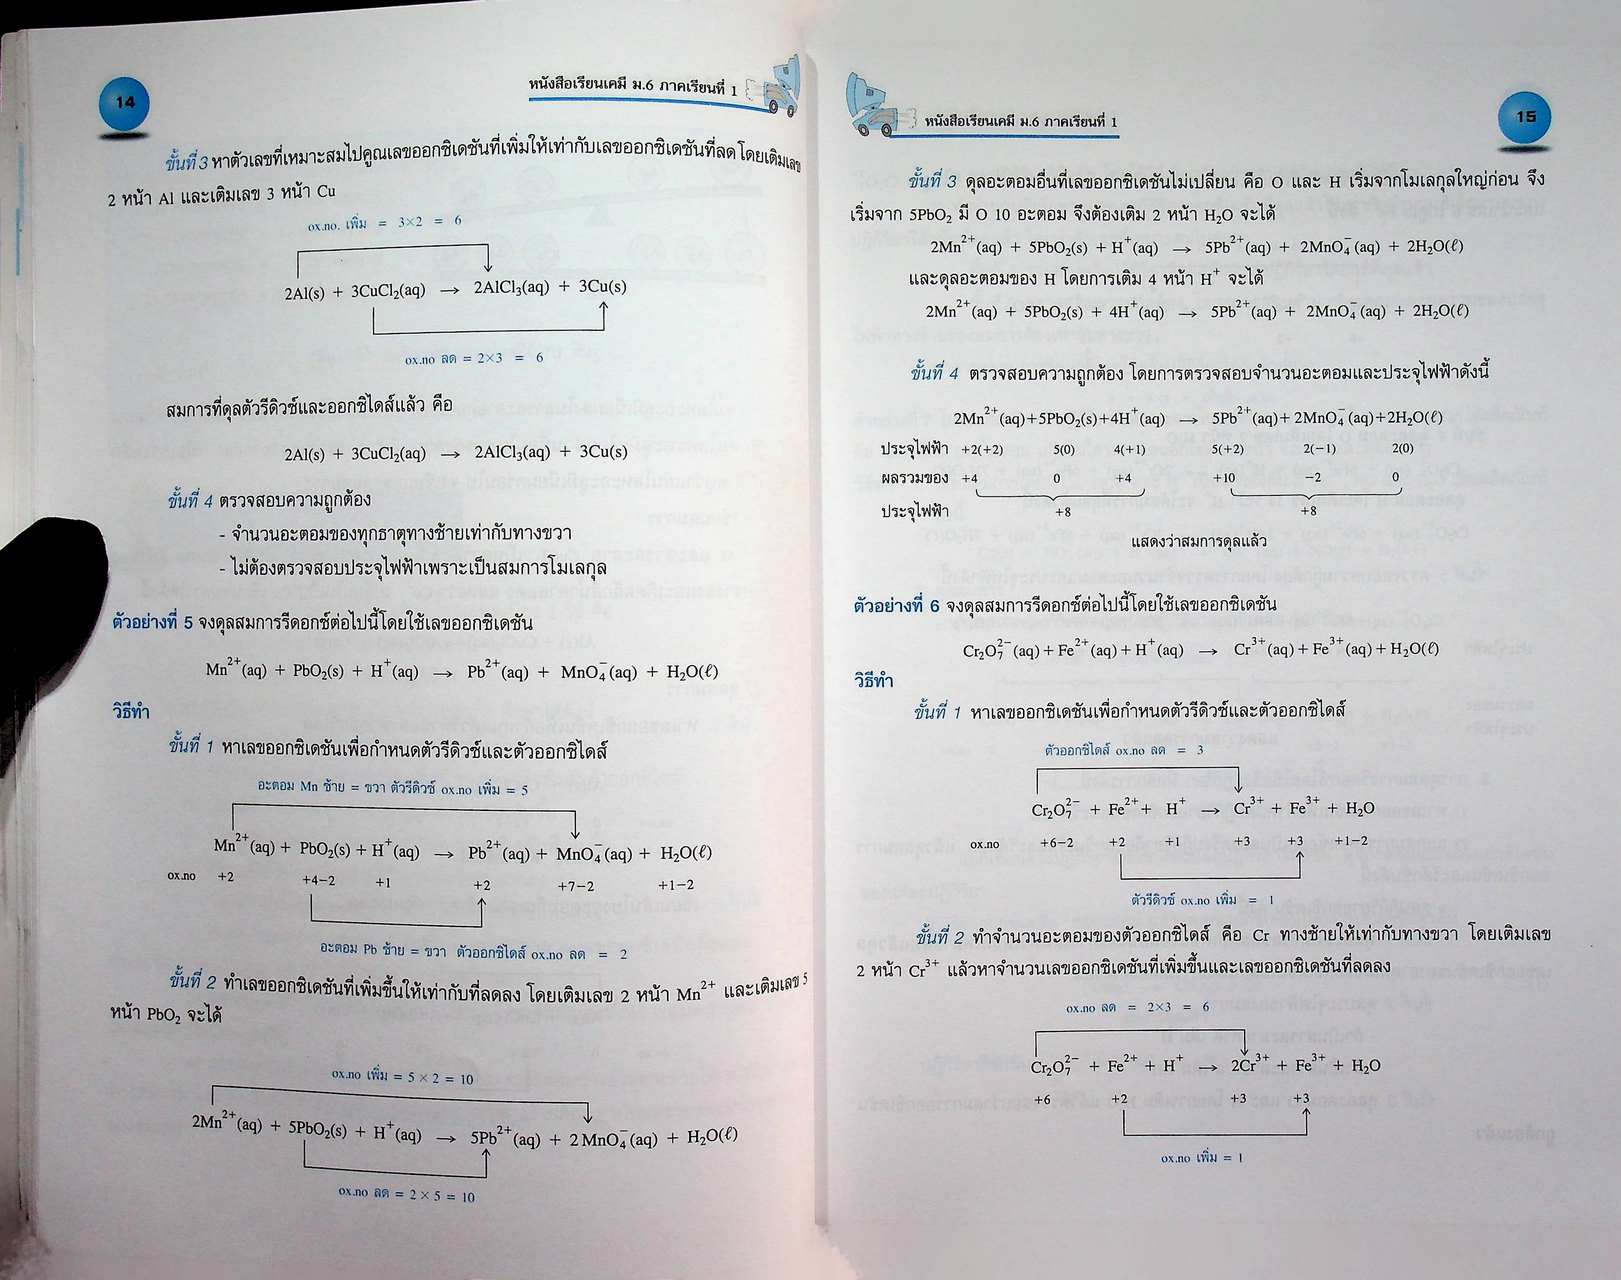 14
หนังสือเรียนเคมี ม.6 ภาคเรียนที่ 1
ขั้นที่ 3 หาตัวเลขที่เหมาะสมไปคูณเลขออกซิเดชันที่เพิ่มให้เท่ากับเลขออกซิเดชันที่ลด โดยเติมเลข
2 หน้า Al และเติมเลข 3 หน้า Cu
ox.no. เพิ่ม = 3×2 = 6
2Al(s) + 3CuCl₂(aq) → 2AlCl₃(aq) + 3Cu(s)
ox.no ลด = 2×3 = 6
สมการที่ดุลตัวรีดิวซ์และออกซิไดส์แล้ว คือ
2Al(s) + 3CuCl₂(aq) → 2AlCl₃(aq) + 3Cu(s)
ขั้นที่ 4 ตรวจสอบความถูกต้อง
- จำนวนอะตอมของทุกธาตุทางซ้ายเท่ากับทางขวา
- ไม่ต้องตรวจสอบประจุไฟฟ้าเพราะเป็นสมการโมเลกุล
ตัวอย่างที่ 5 จงดุลสมการรีดอกซ์ต่อไปนี้โดยใช้เลขออกซิเดชัน
Mn²⁺(aq) + PbO₂(s) + H⁺(aq) → Pb²⁺(aq) + MnO₄⁻(aq) + H₂O(ℓ)
วิธีทำ
ขั้นที่ 1 หาเลขออกซิเดชันเพื่อกำหนดตัวรีดิวซ์และตัวออกซิไดส์
อะตอม Mn ซ้าย = ขวา ตัวรีดิวซ์ ox.no เพิ่ม = 5
Mn²⁺(aq) + PbO₂(s) + H⁺(aq) → Pb²⁺(aq) + MnO₄⁻(aq) + H₂O(ℓ)
ox.no +2 +4−2 +1 +2 +7−2 +1−2
อะตอม Pb ซ้าย = ขวา ตัวออกซิไดส์ ox.no ลด = 2
ขั้นที่ 2 ทำเลขออกซิเดชันที่เพิ่มขึ้นให้เท่ากับที่ลดลง โดยเติมเลข 2 หน้า Mn²⁺ และเติมเลข 5
หน้า PbO₂ จะได้
ox.no เพิ่ม = 5 × 2 = 10
2Mn²⁺(aq) + 5PbO₂(s) + H⁺(aq) → 5Pb²⁺(aq) + 2MnO₄⁻(aq) + H₂O(ℓ)
ox.no ลด = 2 × 5 = 10
หนังสือเรียนเคมี ม.6 ภาคเรียนที่ 1
15
ขั้นที่ 3 ดุลอะตอมอื่นที่เลขออกซิเดชันไม่เปลี่ยน คือ O และ H เริ่มจากโมเลกุลใหญ่ก่อน จึง
เริ่มจาก 5PbO₂ มี O 10 อะตอม จึงต้องเติม 2 หน้า H₂O จะได้
2Mn²⁺(aq) + 5PbO₂(s) + H⁺(aq) → 5Pb²⁺(aq) + 2MnO₄⁻(aq) + 2H₂O(ℓ)
และดุลอะตอมของ H โดยการเติม 4 หน้า H⁺ จะได้
2Mn²⁺(aq) + 5PbO₂(s) + 4H⁺(aq) → 5Pb²⁺(aq) + 2MnO₄⁻(aq) + 2H₂O(ℓ)
ขั้นที่ 4 ตรวจสอบความถูกต้อง โดยการตรวจสอบจำนวนอะตอมและประจุไฟฟ้าดังนี้
2Mn²⁺(aq)+5PbO₂(s)+4H⁺(aq) → 5Pb²⁺(aq)+2MnO₄⁻(aq)+2H₂O(ℓ)
ประจุไฟฟ้า +2(+2) 5(0) 4(+1) 5(+2) 2(−1) 2(0)
ผลรวมของ +4 0 +4 +10 −2 0
ประจุไฟฟ้า +8 +8
แสดงว่าสมการดุลแล้ว
ตัวอย่างที่ 6 จงดุลสมการรีดอกซ์ต่อไปนี้โดยใช้เลขออกซิเดชัน
Cr₂O₇²⁻(aq)+Fe²⁺(aq)+H⁺(aq) → Cr³⁺(aq)+Fe³⁺(aq)+H₂O(ℓ)
วิธีทำ
ขั้นที่ 1 หาเลขออกซิเดชันเพื่อกำหนดตัวรีดิวซ์และตัวออกซิไดส์
ตัวออกซิไดส์ ox.no ลด = 3
Cr₂O₇²⁻ + Fe²⁺ + H⁺ → Cr³⁺ + Fe³⁺ + H₂O
ox.no +6−2 +2 +1 +3 +3 +1−2
ตัวรีดิวซ์ ox.no เพิ่ม = 1
ขั้นที่ 2 ทำจำนวนอะตอมของตัวออกซิไดส์ คือ Cr ทางซ้ายให้เท่ากับทางขวา โดยเติมเลข
2 หน้า Cr³⁺ แล้วหาจำนวนเลขออกซิเดชันที่เพิ่มขึ้นและเลขออกซิเดชันที่ลดลง
ox.no ลด = 2×3 = 6
Cr₂O₇²⁻ + Fe²⁺ + H⁺ → 2Cr³⁺ + Fe³⁺ + H₂O
+6 +2 +3 +3
ox.no เพิ่ม = 1